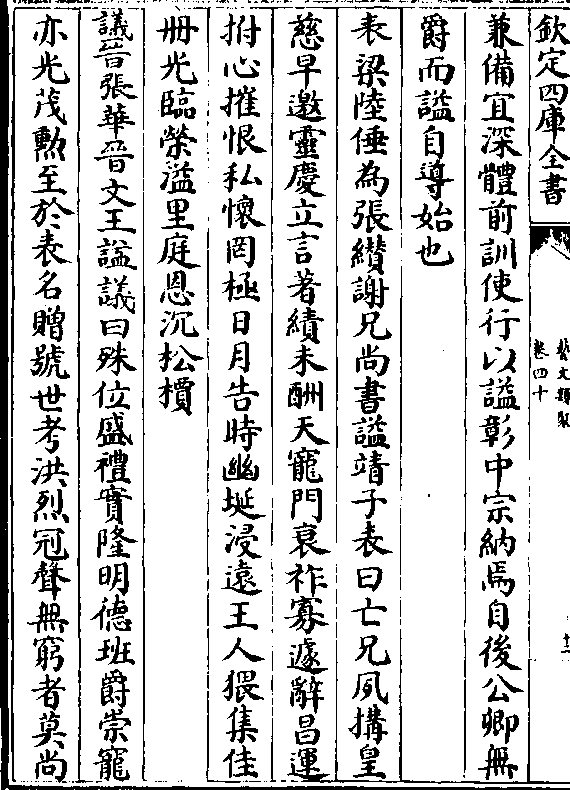 欽定四庫全書
藝文類聚
卷四十
兼備宜深體前訓使行以謚彰中宗納焉自後公卿無
爵而謚自導始也
表梁陸倕為張纘謝兄尚書謚靖子表曰亡兄夙搆皇
慈早邀靈慶立言著績未酬天寵門衰祚寡遽辭昌運
拊心摧恨私懷罔極日月告時幽埏浸遠王人猥集佳
冊光臨榮溢里庭恩沉松檟
議晉張華晉文王謚議曰殊位盛禮實隆明德班爵崇寵
亦光茂勲至於表名贈號世考洪烈冠聲無窮者莫尚